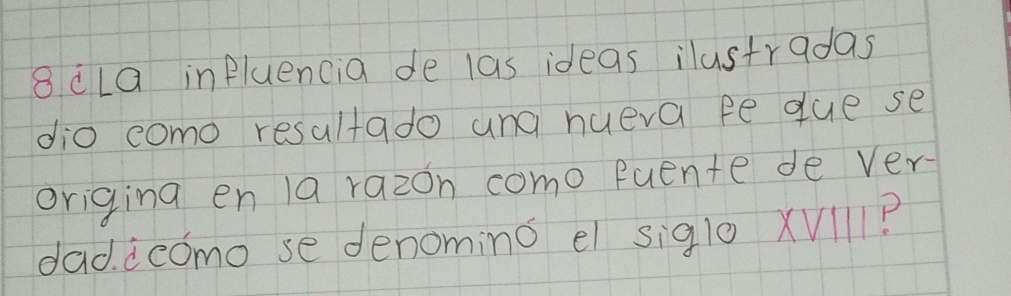 8 ¿La influencia de las ideas ilustradas
dio como resultado una nueva fe que se
origina en la razón como fuente de ver-
dad. ¿cómo se denominó el siglo XVIII?